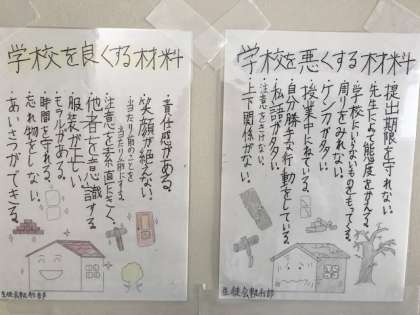 学校を良くする材料
・責任感がある。
・笑顔が絶えない。
・当たり前のことを
当たり前にする。
・注意を素直にきく。
・他者を意識する
・服装が正しい
・モラルがある。
・時間を守れる。
・忘れ物をしない。
・あいさつができる。
生徒会執行部
学校を悪くする材料
・提出期限を守れない。
・先生によって態度をかえる。
・学校にいらないものをもってくる。
・周りをみれない。
・ケンカが多い。
・授業中にねている。
・自分勝手な行動をしている。
・私語が多い。
・注意をきけない。
・上下関係がない。
生徒会執行部